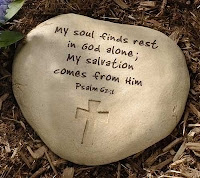 My soul finds rest
in God alone;
My salvation
comes from Him
Psalm 62:1